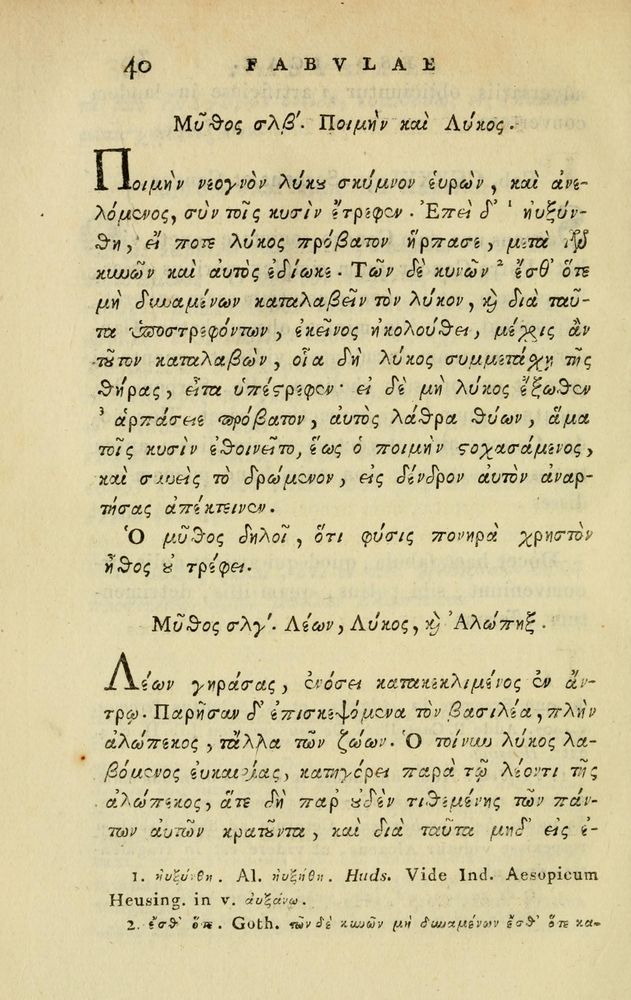 40 FABVLAE
Μῦθος σλβʹ. Ποιμὴν καὶ Λύκος.
Ποιμὴν νεογνὸν λύκου σκύμνον εὑρὼν, καὶ ἀνε-
λόμενος, σὺν τοῖς κυσὶν ἔτρεφεν. Ἐπεὶ δ' ¹ ηὐξύν-
θη, εἴ ποτε λύκος πρόβατον ἥρπασε, μετὰ τῶν
κυνῶν καὶ αὐτὸς ἐδίωκε. Τῶν δὲ κυνῶν ² ἔσθ' ὅτε
μὴ δυναμένων καταλαβεῖν τὸν λύκον, καὶ διὰ ταῦ-
τα ὑποστρεφόντων, ἐκεῖνος ἠκολούθει, μέχρις ἂν
τοῦτον καταλαβὼν, οἷα δὴ λύκος συμμετάσχῃ τῆς
θήρας, εἶτα ὑπέστρεφεν· εἰ δὲ μὴ λύκος ἔξωθεν
³ ἁρπάσειε πρόβατον, αὐτὸς λάθρα θύων, ἅμα
τοῖς κυσὶν ἐθοινεῖτο, ἕως ὁ ποιμὴν στοχασάμενος,
καὶ συνεὶς τὸ δρώμενον, εἰς δένδρον αὐτὸν ἀναρ-
τήσας ἀπέκτεινεν.
Ὁ μῦθος δηλοῖ, ὅτι φύσις πονηρὰ χρηστὸν
ἦθος οὐ τρέφει.
Μῦθος σλγʹ. Λέων, Λύκος, καὶ Ἀλώπηξ.
Λέων γηράσας, ἐνόσει κατακεκλιμένος ἐν ἄν-
τρῳ. Παρῆσαν δ' ἐπισκεψόμενα τὸν βασιλέα, πλὴν
ἀλώπεκος, τἆλλα τῶν ζώων. Ὁ τοίνυν λύκος λα-
βόμενος εὐκαιρίας, κατηγόρει παρὰ τῷ λέοντι τῆς
ἀλώπεκος, ἅτε δὴ παρ' οὐδὲν τιθεμένης τῶν πάν-
των αὐτῶν κρατοῦντα, καὶ διὰ ταῦτα μηδ' εἰς ἐ-
1. ηὐξύνθη. Al. ηὐξήθη. Huds. Vide Ind. Aesopicum
Heusing. in v. αὐξάνω.
2. ἔσθ' ὅτε. Goth. τῶν δὲ κυνῶν μὴ δυναμένων ἔσθ' ὅτε κα-